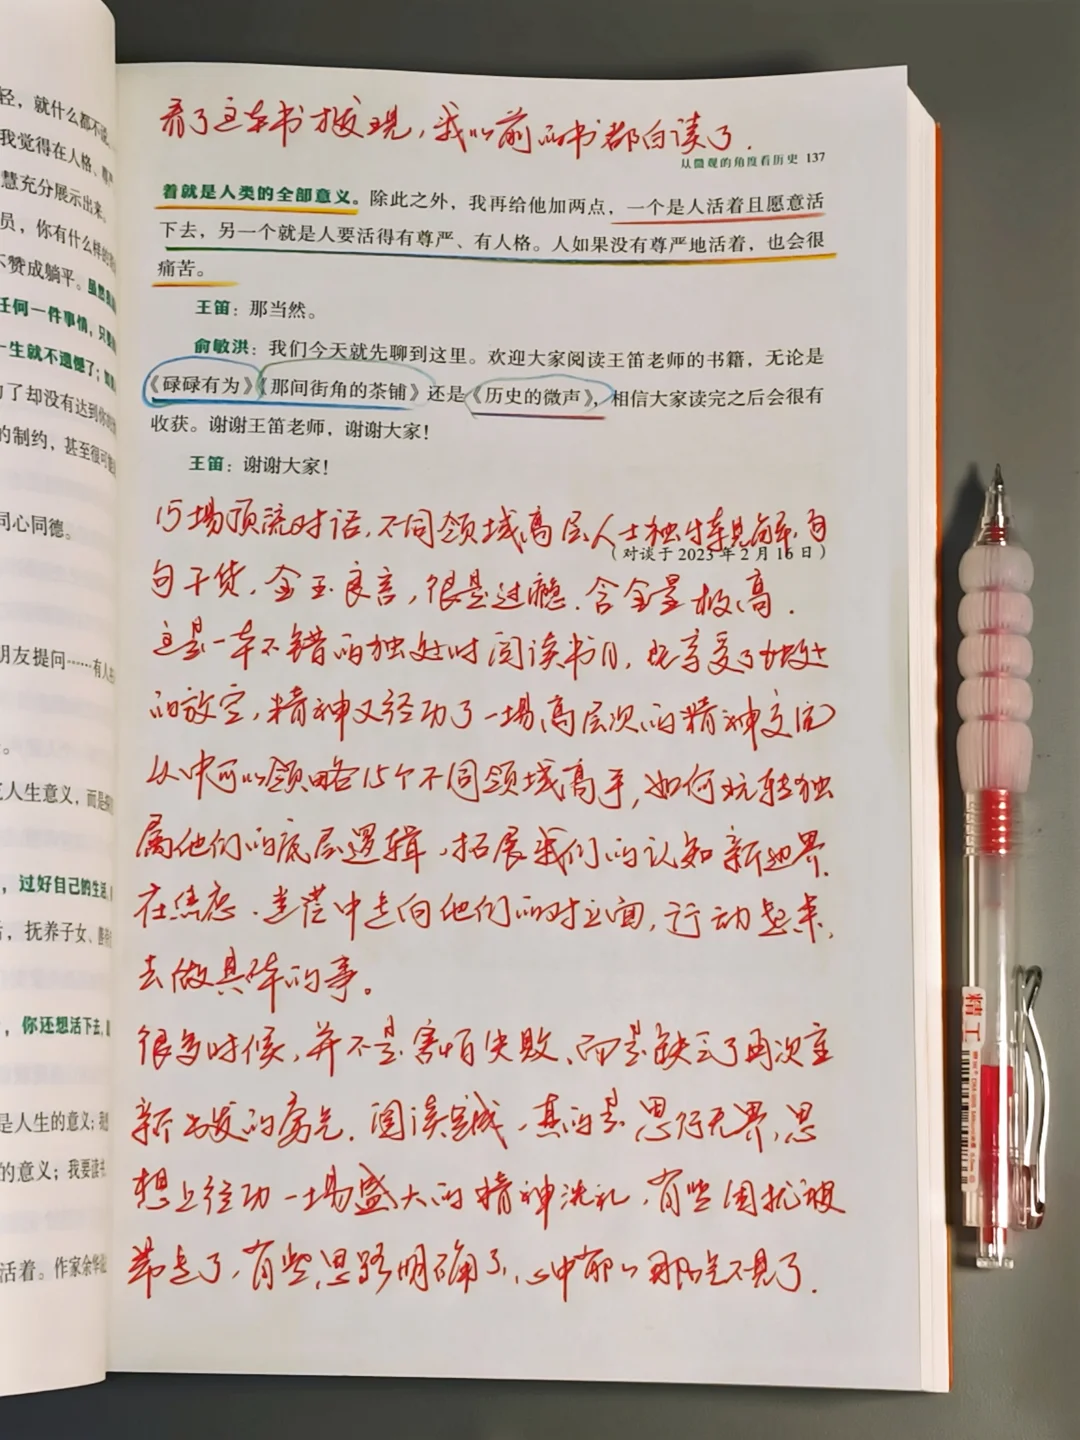 轻，就什么都不说
我觉得在人格、尊严
慧充分展示出来。
员，你有什么样的
不赞成躺平。虽然
任何一件事情，只要
一生就不遗憾了；如果
为了却没有达到你
的制约，甚至很可能
同心同德。
朋友提问……有人
人生意义，而是
，过好自己的生活，
后，抚养子女、
，你还想活下去，
是人生的意义；我
的意义；我要读书、
活着。作家余华说
看了这本书才发现，我以前的书都白读了.
从微观的角度看历史 137
着就是人类的全部意义。除此之外，我再给他加两点，一个是人活着且愿意活
下去，另一个就是人要活得有尊严、有人格。人如果没有尊严地活着，也会很
痛苦。
王笛：那当然。
俞敏洪：我们今天就先聊到这里。欢迎大家阅读王笛老师的书籍，无论是
《碌碌有为》《那间街角的茶铺》还是《历史的微声》，相信大家读完之后会很有
收获。谢谢王笛老师，谢谢大家！
王笛：谢谢大家！
15场顶流对话，不同领域高层人士独特见解，句
（对谈于 2023 年 2 月 16 日）
句干货，金玉良言，很是过瘾.含金量极高.
这是一本不错的独处时阅读书目，既享受了独处
的放空，精神又经历了一场高层次的精神交流
从中可以领略15个不同领域高手，如何玩转独
属他们的底层逻辑，拓展我们的认知新边界.
在焦虑.迷茫中走向他们的对立面，行动起来，
去做具体的事。
很多时候，并不是害怕失败、而是缺乏了再次重
新出发的勇气.阅读，真的是思行无界，思
想上经历一场盛大的精神洗礼，有些困扰被
带走了，有些思路明确了，心中郁结那么不见了.
精工